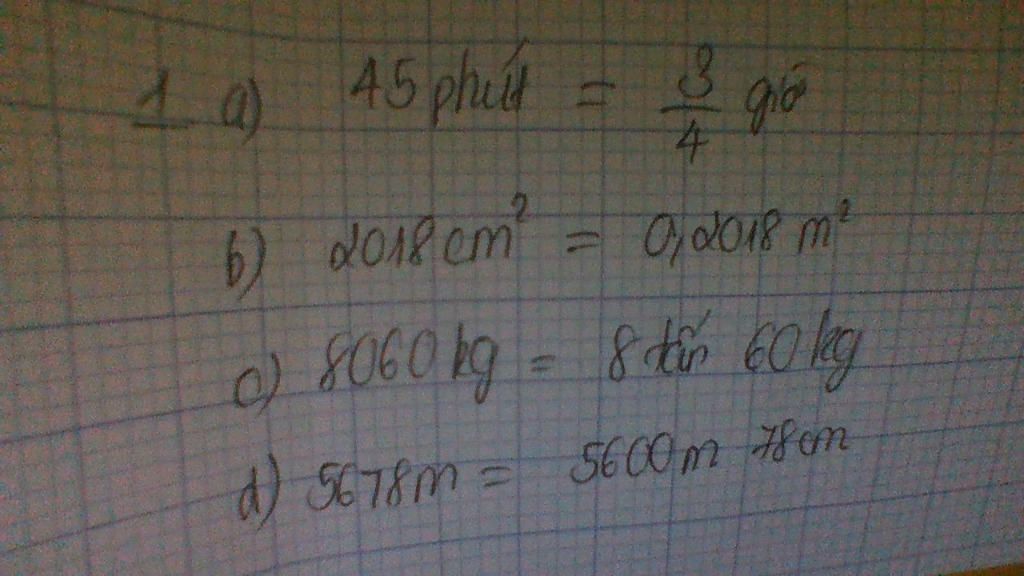 1 a) 45 phút = 3/4 giờ
b) 2018 cm² = 0,2018 m²
c) 8060 kg = 8 tấn 60 kg
d) 5678m = 5600m 78cm